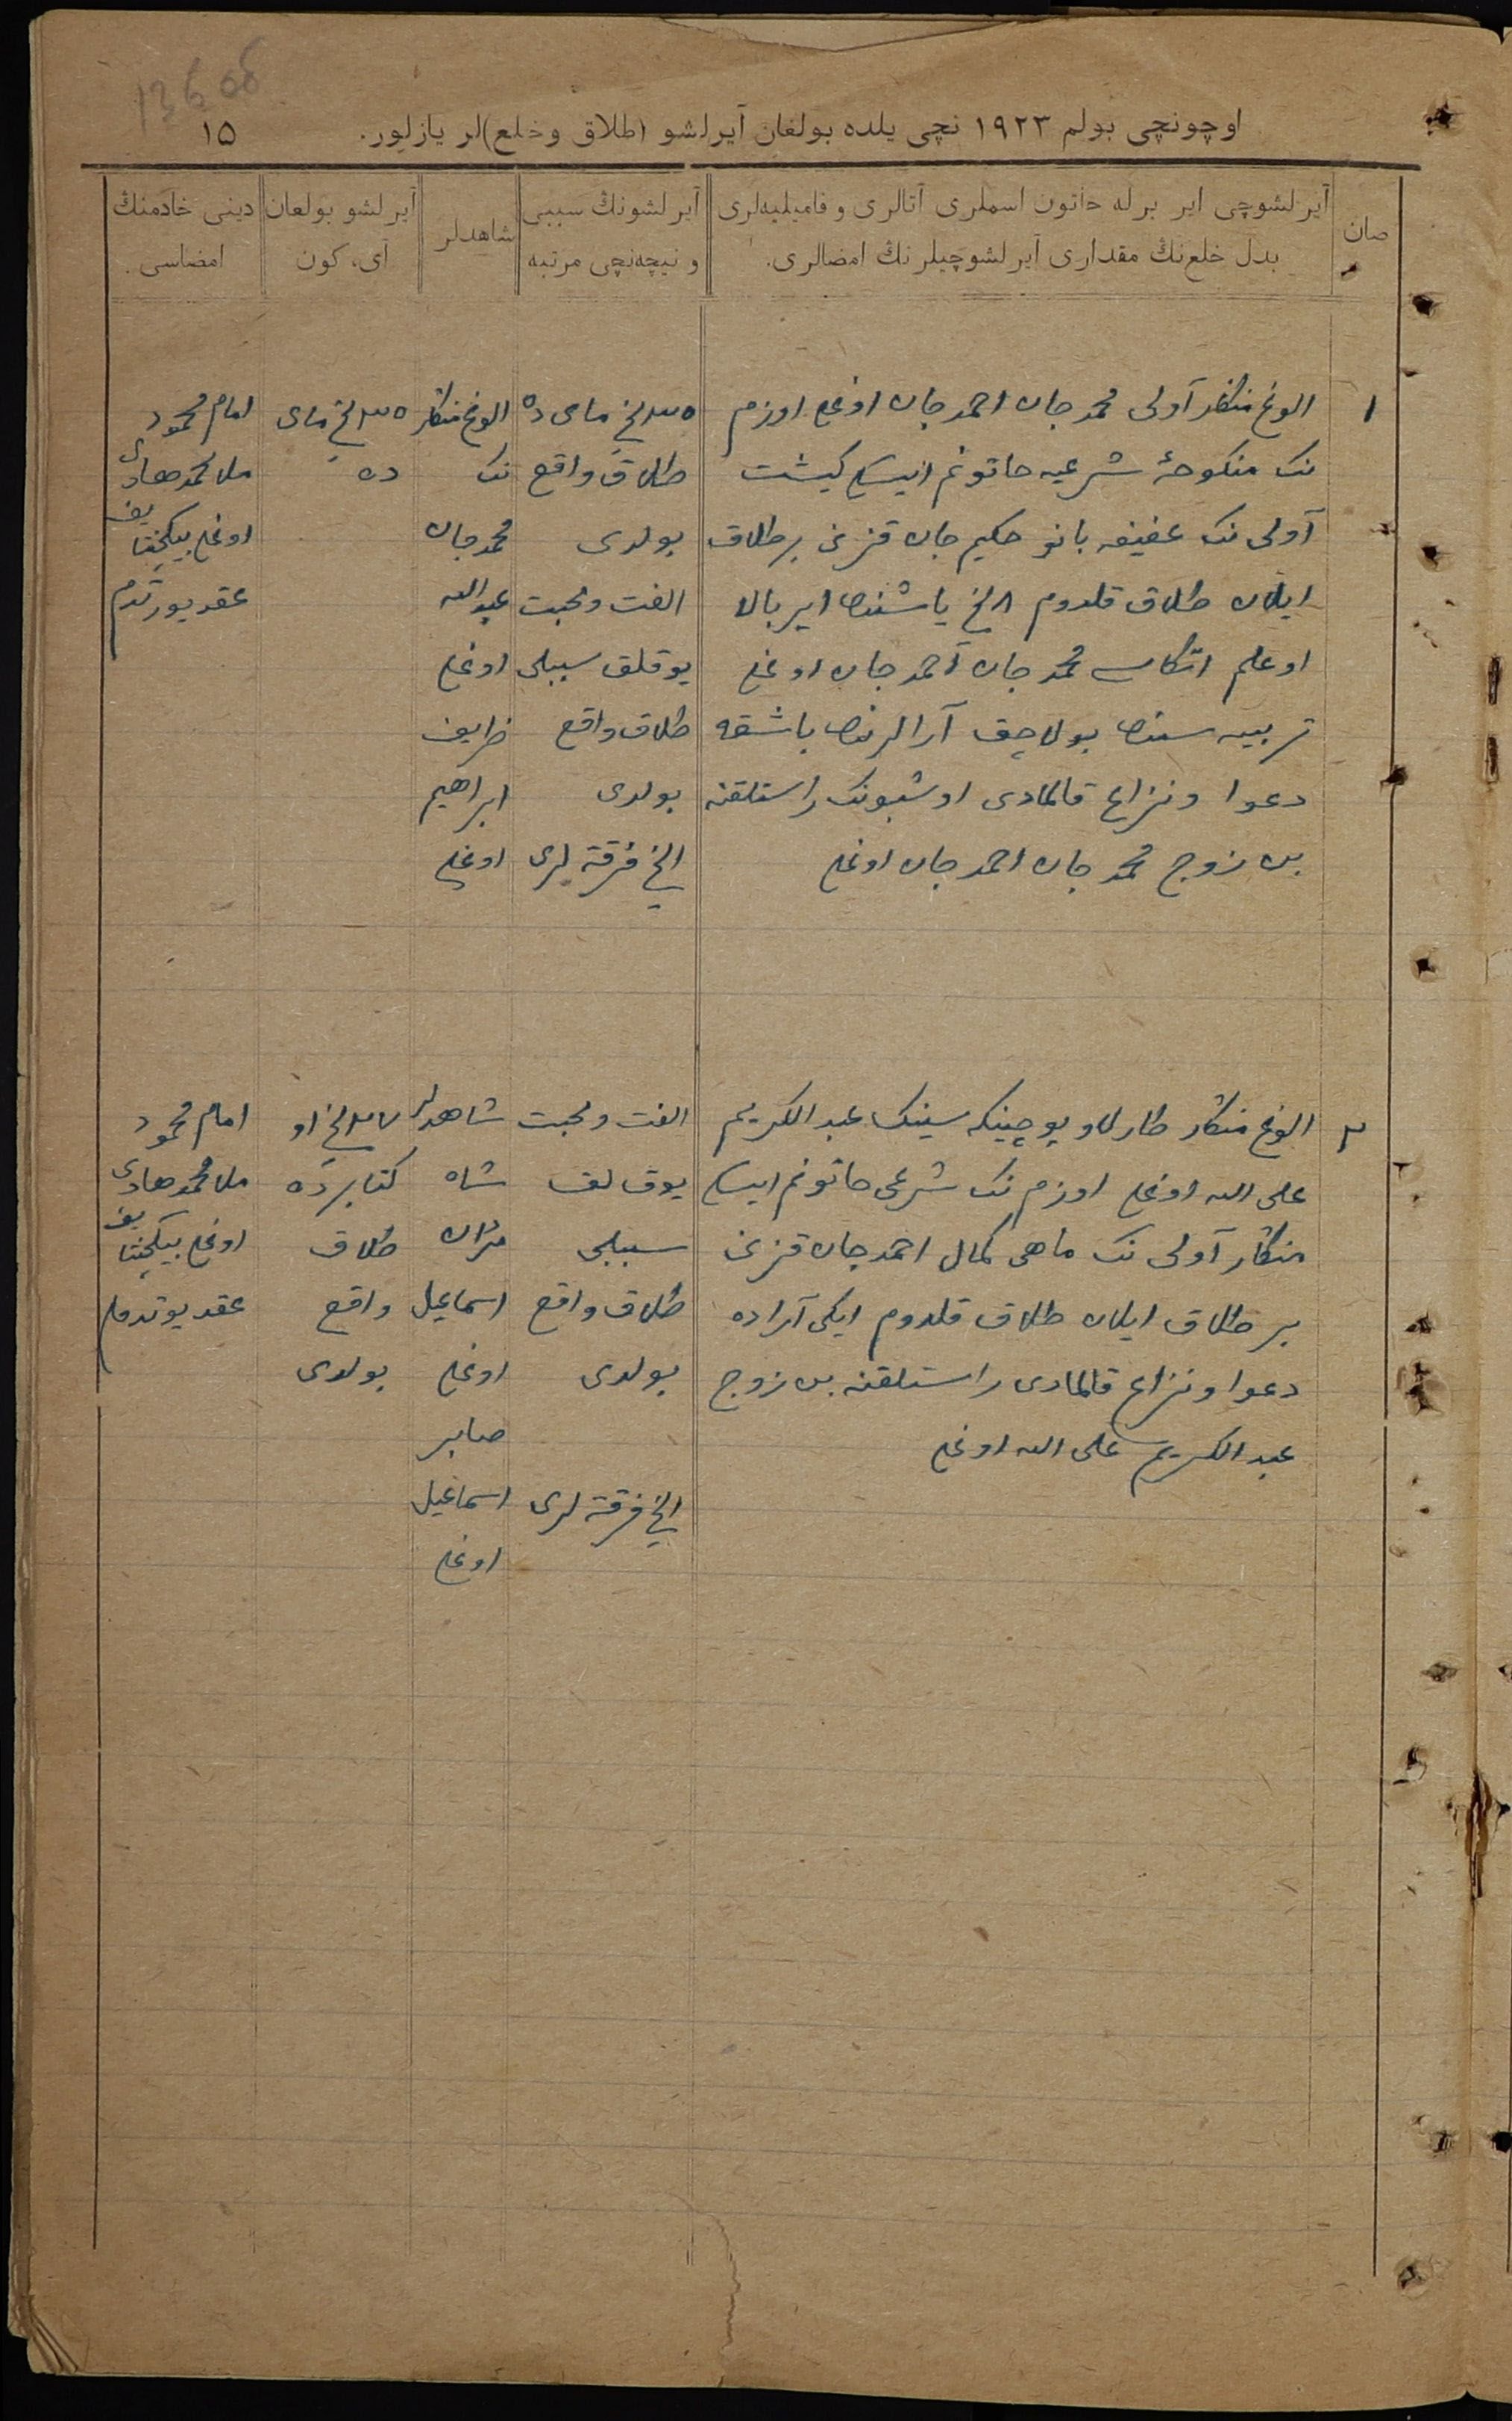 136 об
اوچونچی بولم ۱۹۲۳ نچی یلده بولغان آیرلشو (طلاق وخلع)لر یازلور.
۱۵
صان
آیرلشوچی ایر برله خاتون اسملری آتالری و فامیلیه‌لری
بدل خلع‌نڭ مقداری آیرلشوچیلرنڭ امضالری.
آیرلشونڭ سببی
و نیچه‌نچی مرتبه
شاهدلر
آیرلشو بولغان
آی، کون
دینی خادمنڭ
امضاسی.
۱
الوغ منگار آولی محمد جان احمد جان اوغلی اوزم
نک منکوحهٔ شرعیه خاتونم ایسکی کیشت
آولی نک عفیفه بانو حکیم جان قزین بر طلاق
ایلان طلاق قلدوم ۸ نچی یاشنده ایر بالا
اوغلم اتکاسی محمد جان احمد جان اوغلی
تربیه سنده بولاچق آرالرنده باشقه
دعوا ونزاع قالمادی اوشبونک راستلقنه
من زوج محمد جان احمد جان اوغلی
۲۵ نچی مای ده
طلاق واقع
بولدی
الفت ومحبت
یوقلق سببلی
طلاق واقع
بولدی
نچی فرقه لری
الوغ منگار
نک
محمد جان
عبدالله
اوغلی
ظریف
ابراهیم
اوغلی
۲۵ نچی مای
ده
امام محمود
ملا محمد هادی
اوغلی بیکچنتایف
عقد یورتدم
۲
الوغ منگار عبد الکریم
علی الله اوغلی اوزم نک شرعی خاتونم ایسکی
منگار آولی نک ماهی کمال احمد جان قزین
بر طلاق ایلان طلاق قلدوم ایکی آراده
دعوا ونزاع قالمادی راستلقنه من زوج
عبد الکریم علی الله اوغلی
الفت ومحبت
یوق لق
سببلی
طلاق واقع
بولدی
نچی فرقه لری
شاهدلر
شاه
مران
اسماعیل
اوغلی
صابر
اسماعیل
اوغلی
۲۷ نچی او
کتابرده
طلاق
واقع
بولدی
امام محمود
ملا محمد هادی
اوغلی بیکچنتایف